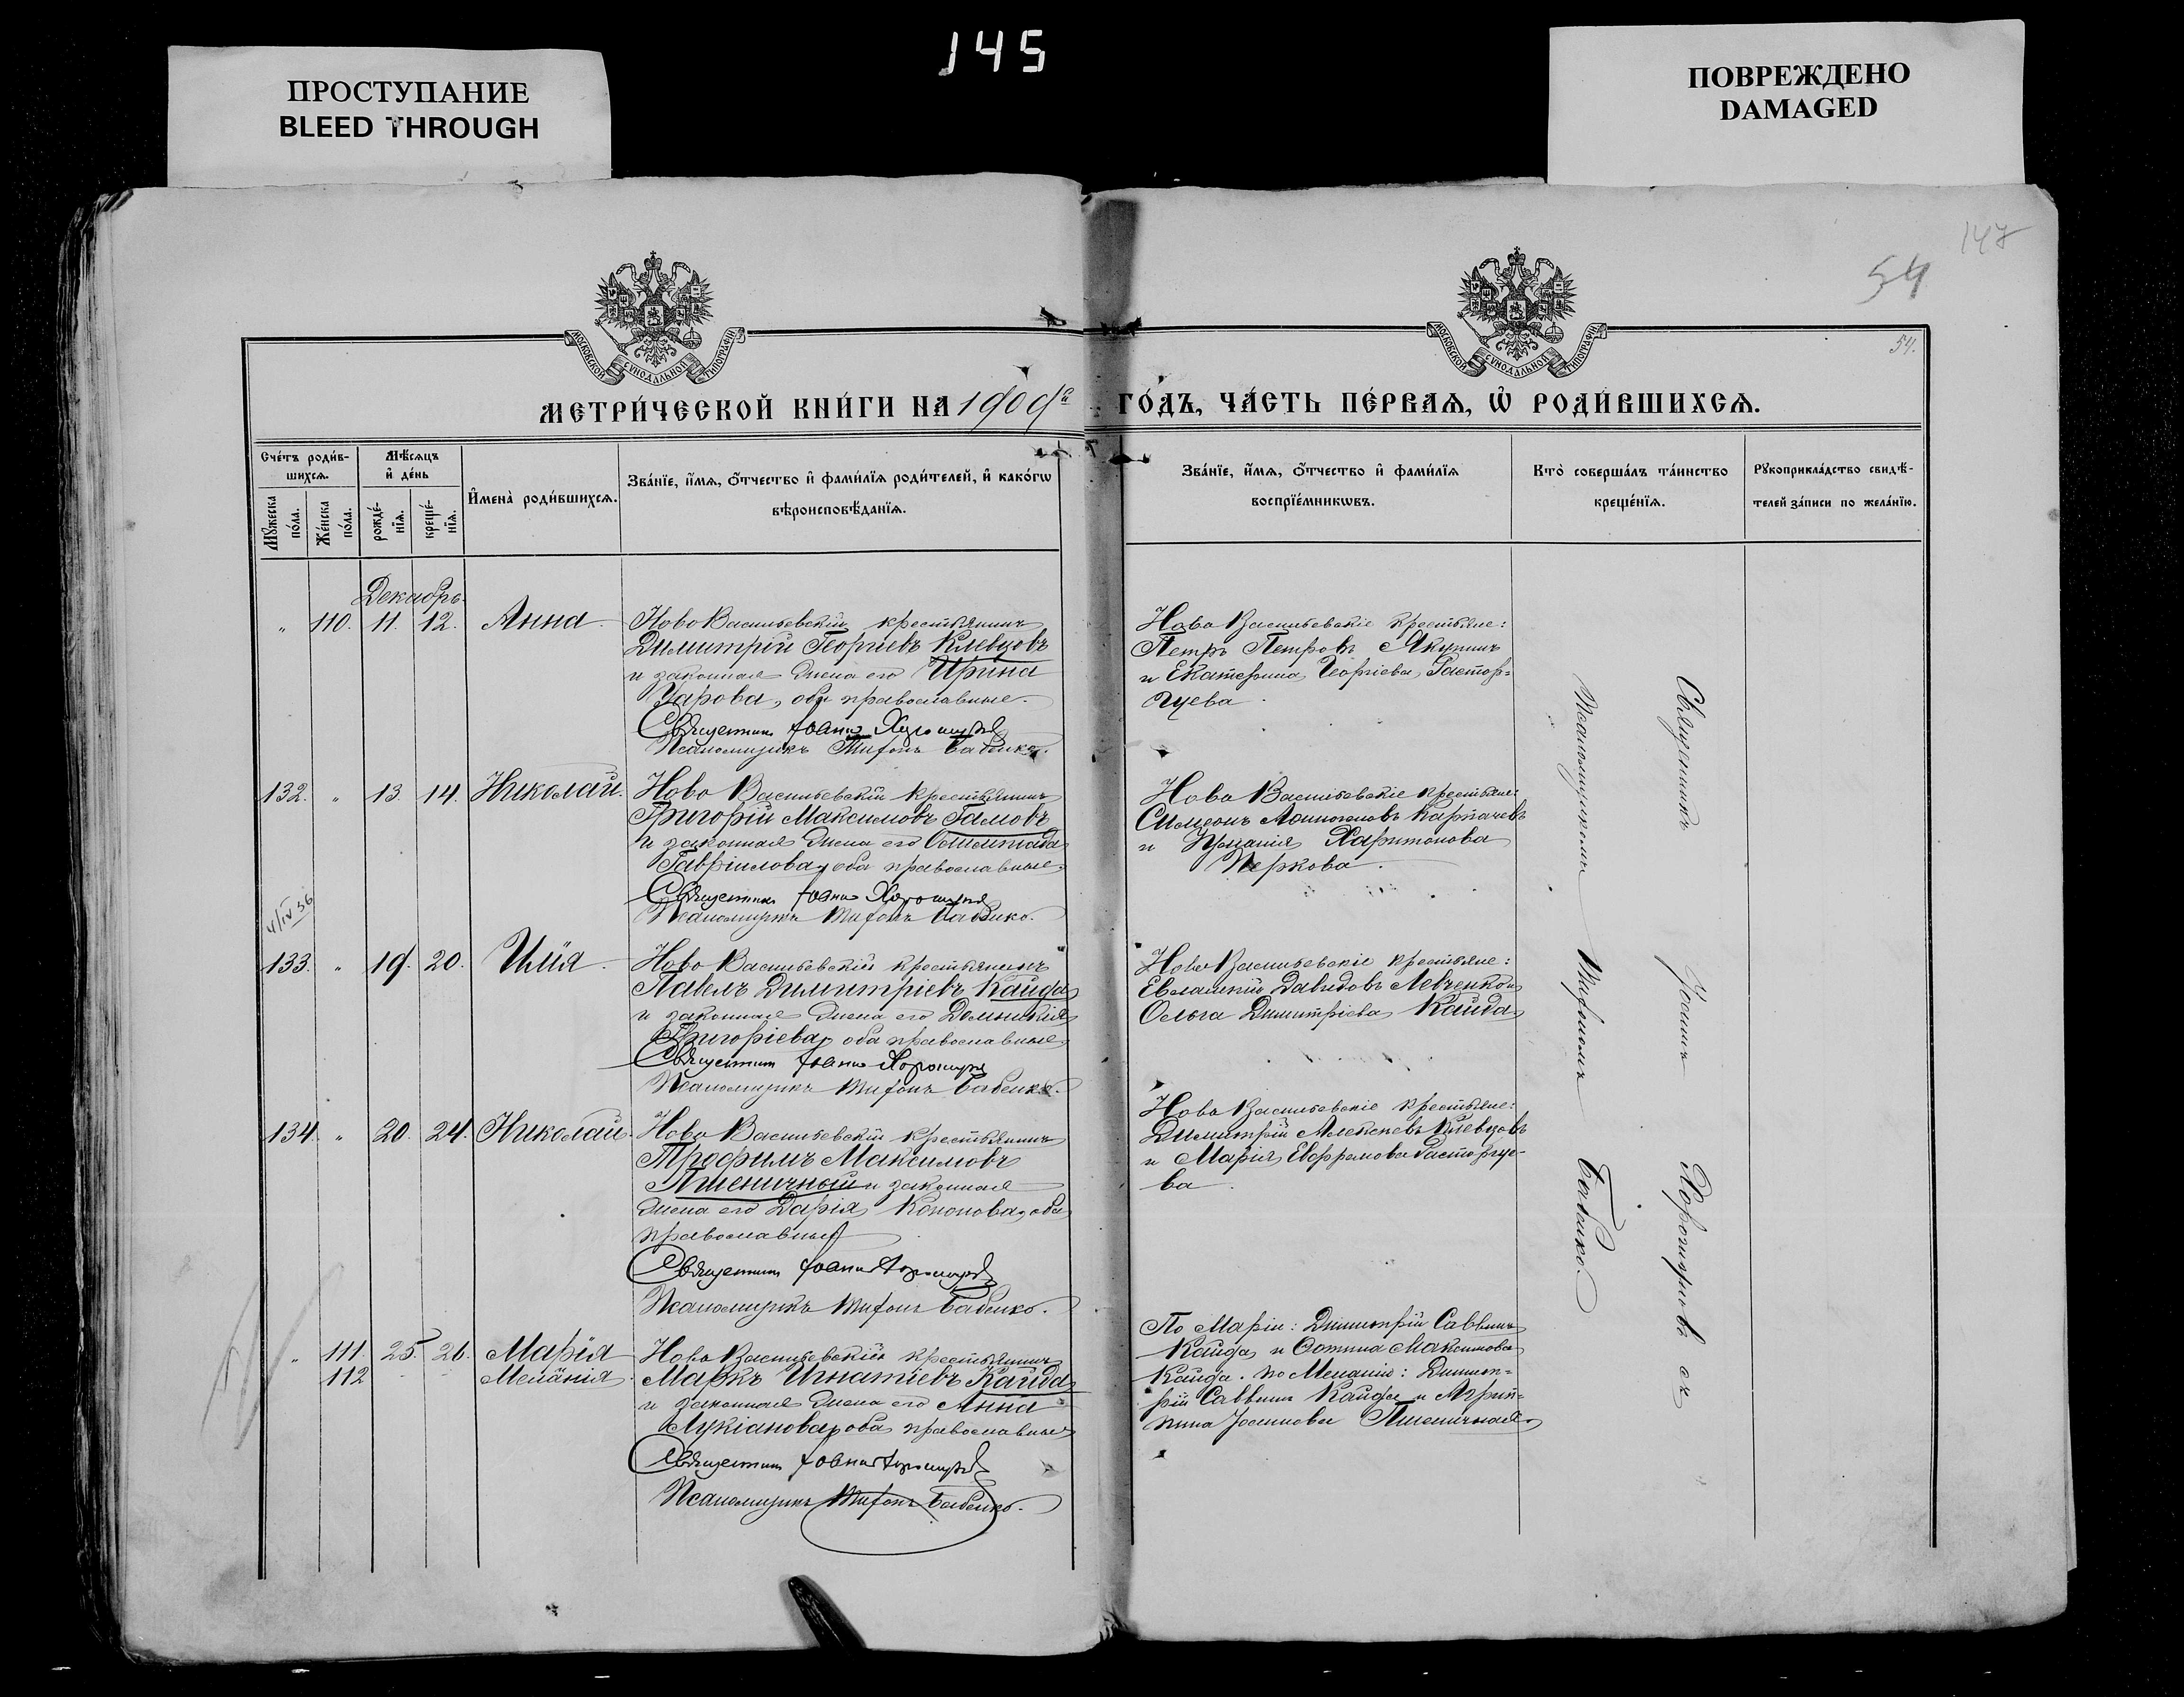 145
ПРОСТУПАНИЕ
BLEED THROUGH
ПОВРЕЖДЕНО
DAMAGED
147
54
54.
МОСКОВСКОЙ СѴНОДАЛЬНОЙ ТИПОГРАФІИ
МОСКОВСКОЙ СѴНОДАЛЬНОЙ ТИПОГРАФІИ
МЕТРИ́ЧЕСКОЙ КНИ́ГИ НА 1909й ГО́ДЪ, ЧА́СТЬ ПЕ́РВАѦ, Ѡ҆ РОДИ́ВШИХСѦ.
Сче́тъ роди́в-
шихсѧ.
Мꙋ́жеска
по́ла.
Же́нска
по́ла.
Мѣ́сѧцъ
и҆ де́нь
рожде́-
нїѧ.
креще́-
нїѧ.
И҆мена̀ роди́вшихсѧ.
Зва́нїе, и҆́мѧ, ѻ҆́тчество и҆ фами́лїѧ роди́телей, и҆ како́гѡ
вѣроисповѣ́данїѧ.
Зва́нїе, и҆́мѧ, ѻ҆́тчество и҆ фами́лїѧ
воспрїе́мникѡвъ.
Кто̀ соверша́лъ та́инство
креще́нїѧ.
Рꙋкоприкла́дство свидѣ́-
телей за́писи по жела́нїю.
Декабрь.
" 110. 11. 12. Анна.
Ново Васильевскій крестьянинъ
Димитрій Георгіевъ Клевцовъ
и законная жена его Ирина
Уарова, оба православные.
Священникъ Іоаннъ
Псаломщикъ Тифонъ Бабенко.
Ново Васильевскіе крестьяне:
Петръ Петровъ Якунинъ
и Екатерина Георгіева Растор-
гуева.
132. " 13. 14. Николай.
Ново Васильевскій крестьянинъ
Григорій Максимовъ Гамовъ
и законная жена его
Гавріилова, оба православные.
Священникъ Іоаннъ
Псаломщикъ Тифонъ Бабенко.
Ново Васильевскіе крестьяне:
Симеонъ Карпачевъ
и Харитонова
Перкова.
4/IV 36
133. " 19. 20. Илія.
Ново Васильевскій крестьянинъ
Павелъ Димитріевъ Кайда
и законная жена его Домникія
Григоріева, оба православные.
Священникъ Іоаннъ
Псаломщикъ Тифонъ Бабенко.
Ново Васильевскіе крестьяне:
Евлампій Давидовъ Левченко и
Ольга Димитріева Кайда
134. " 20. 24. Николай.
Ново Васильевскій крестьянинъ
Трофимъ Максимовъ
Пшеничный и законная
жена его Дарія Кононова, оба
православные
Священникъ Іоаннъ
Псаломщикъ Тифонъ Бабенко.
Ново Васильевскіе крестьяне:
Димитрій Алексіевъ Клевцовъ
и Марія Расторгуе-
ва.
" 111. 25. 26. Марія
112 Меланія.
Ново Васильевскій крестьянинъ
Маркъ Игнатіевъ Кайда
и законная жена его Анна
Лукіанова, оба православные
Священникъ Іоаннъ
Псаломщикъ Тифонъ Бабенко.
По Маріи: Димитрій Саввинъ
Кайда и Максимова
Кайда. по Меланіи: Димит-
рій Саввинъ Кайда и Агрип-
пина Іоаннова Пшеничная.
Священникъ Іоаннъ съ
Псаломщикомъ Тифономъ Бабенко